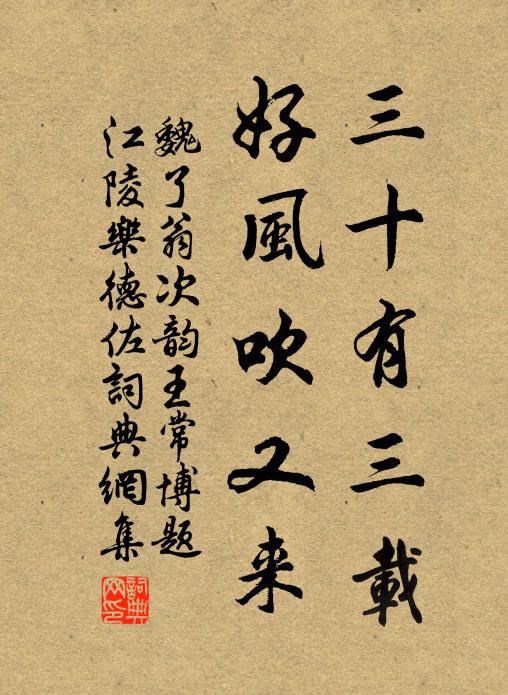 三十有三載
好風吹又来
魏了翁次韵王常博题
江陵樂德佐詞典網集
詞典
网印